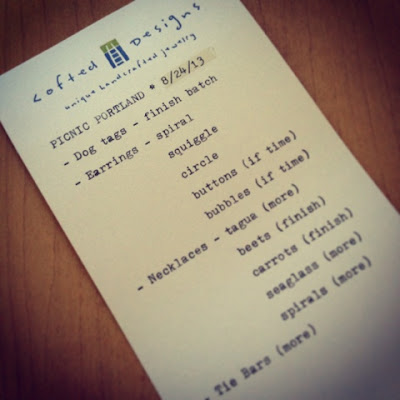 Lofted Designs
unique handcrafted jewelry
PICNIC PORTLAND * 8/24/13
- Dog tags - finish batch
- Earrings - spiral
squiggle
circle
buttons (if time)
bubbles (if time)
- Necklaces - tagua (more)
beets (finish)
carrots (finish)
seaglass (more)
spirals (more)
- Tie Bars (more)